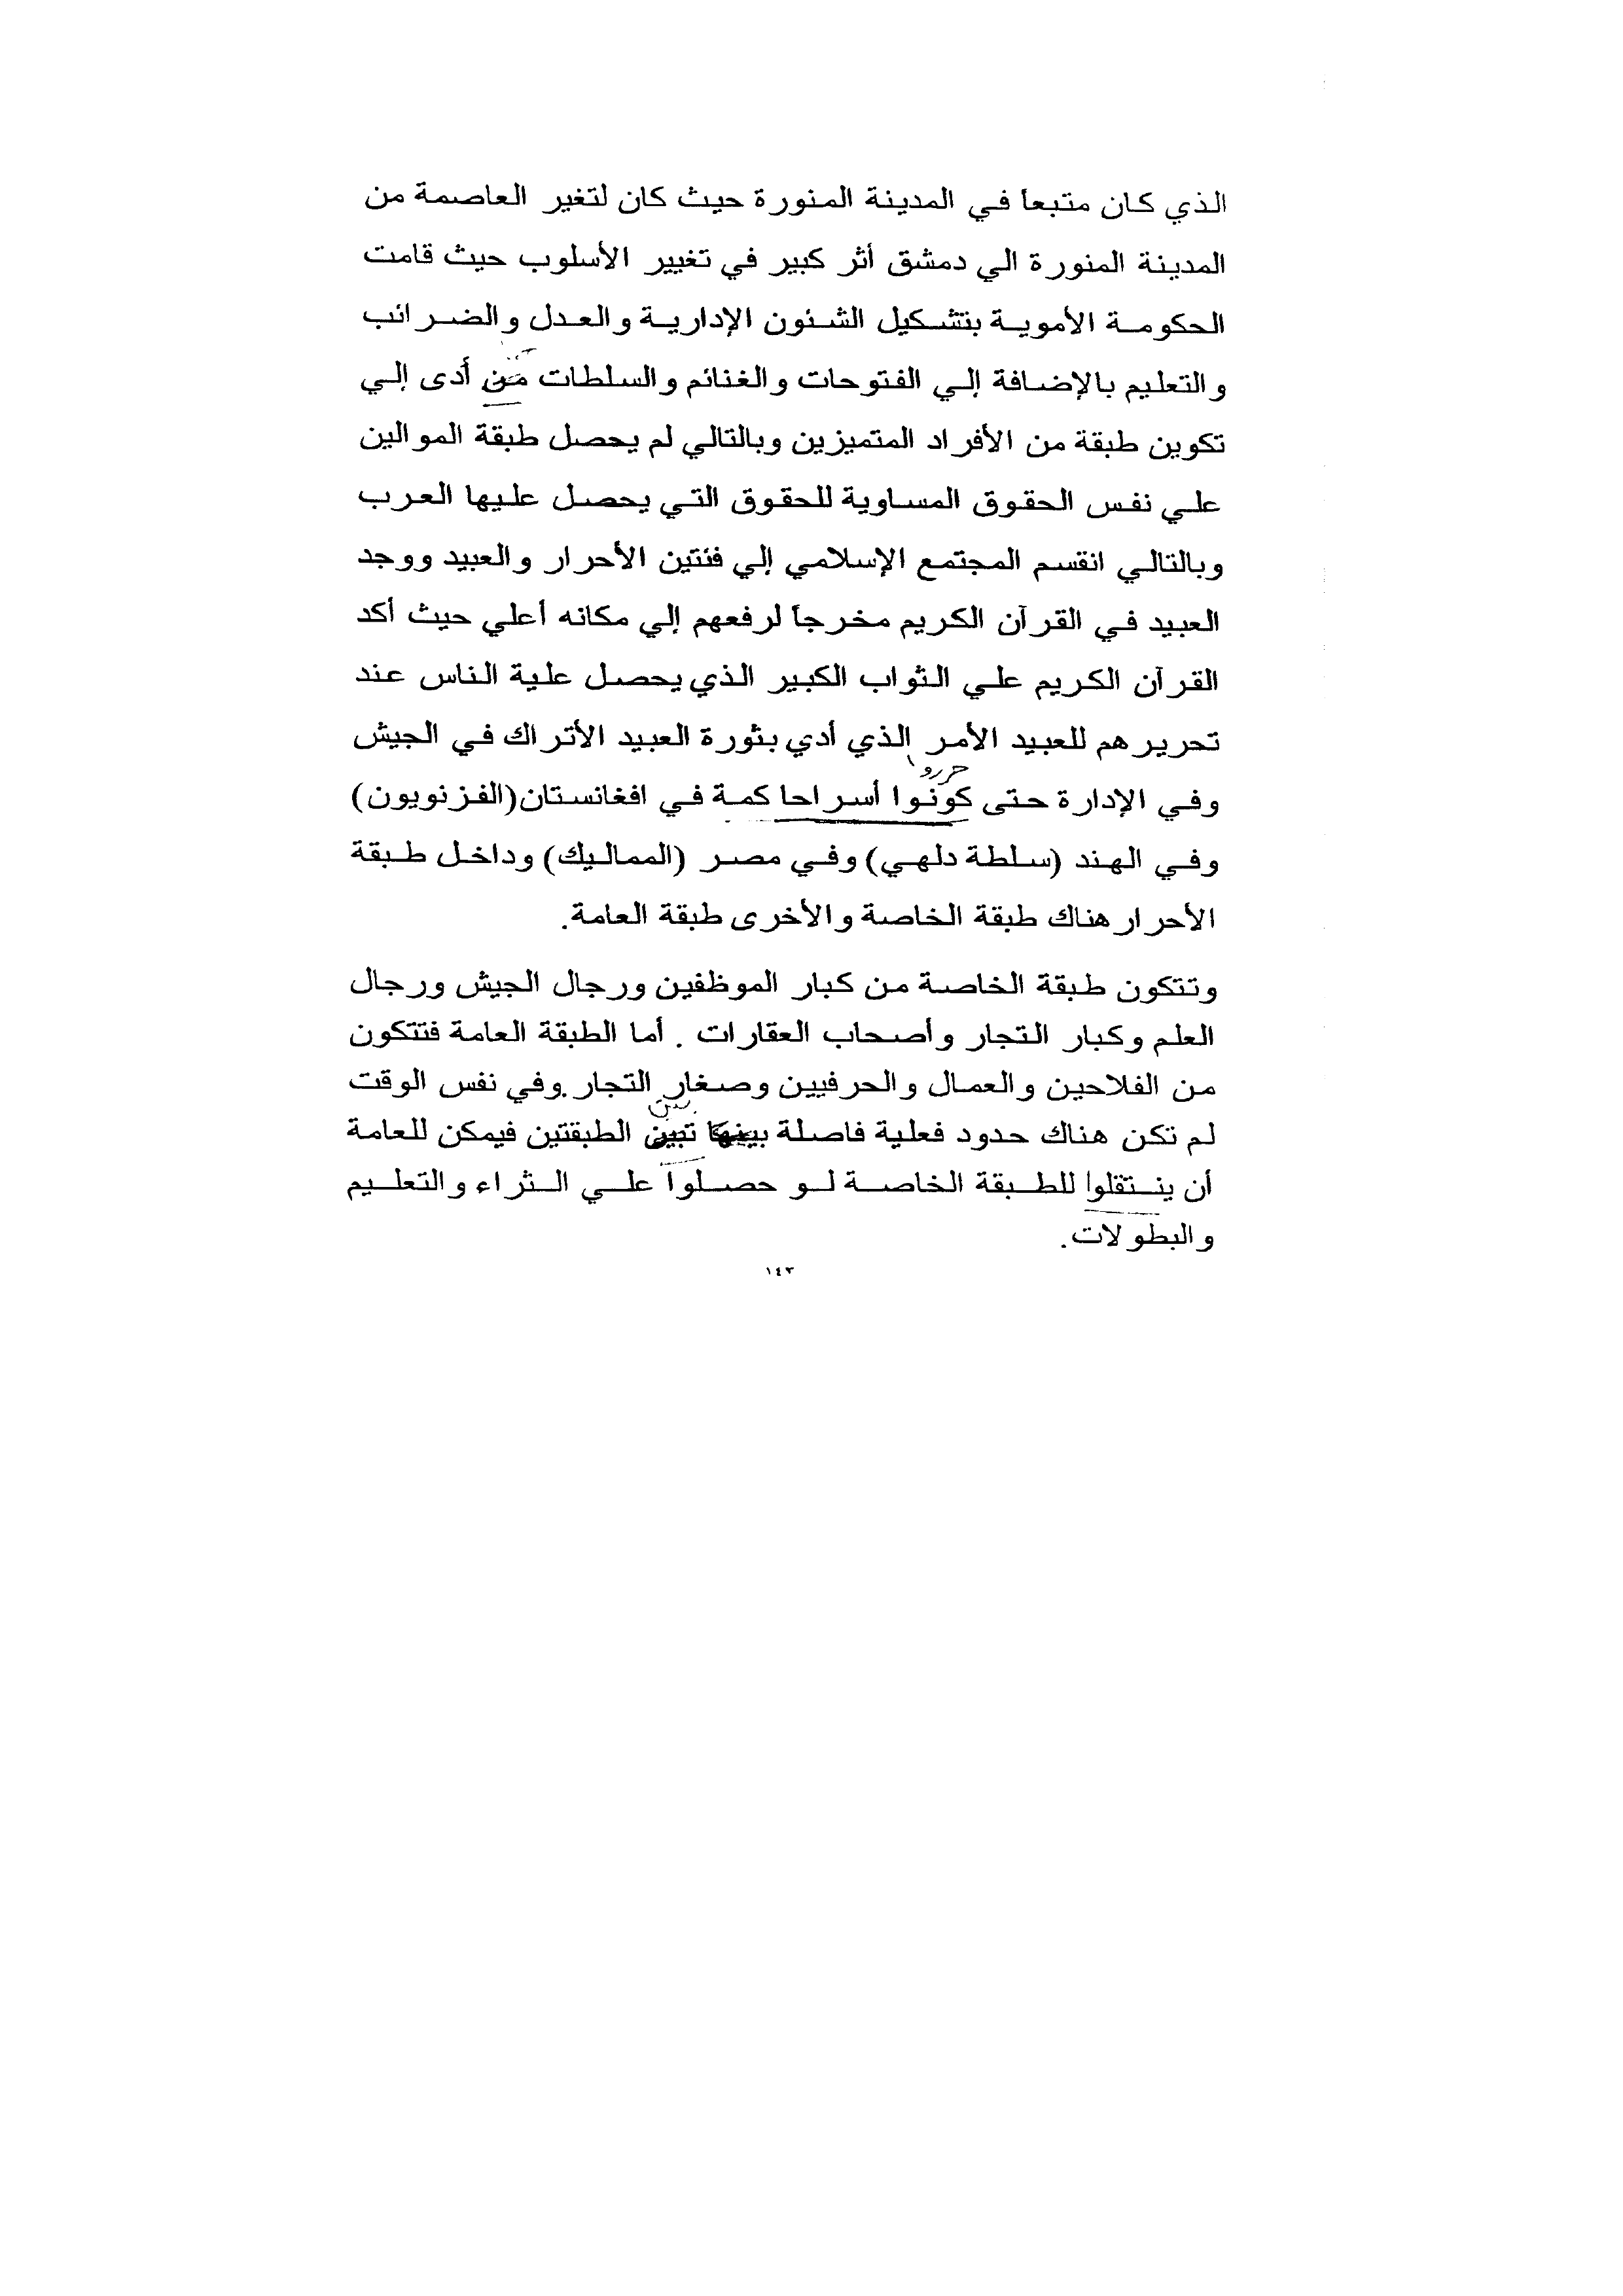 الذي كان متبعاً في المدينة المنورة حيث كان لتغير العاصمة من
المدينة المنورة الي دمشق أثر كبير في تغيير الأسلوب حيث قامت
الحكومة الأموية بتشكيل الشئون الإدارية والعدل والضرائب
والتعليم بالإضافة إلي الفتوحات والغنائم والسلطات من أدى إلي
تكوين طبقة من الأفراد المتميزين وبالتالي لم يحصل طبقة الموالين
علي نفس الحقوق المساوية للحقوق التي يحصل عليها العرب
وبالتالي انقسم المجتمع الإسلامي إلي فئتين الأحرار والعبيد ووجد
العبيد في القرآن الكريم مخرجاً لرفعهم إلي مكانه أعلي حيث أكد
القرآن الكريم علي الثواب الكبير الذي يحصل علية الناس عند
تحريرهم للعبيد الأمر الذي أدي بثورة العبيد الأتراك في الجيش
حرروا
وفي الإدارة حتى كونوا أسراحا كمة في افغانستان(الفزنويون)
وفي الهند (سلطة دلهي) وفي مصر (المماليك) وداخل طبقة
الأحرار هناك طبقة الخاصة والأخرى طبقة العامة.
وتتكون طبقة الخاصة من كبار الموظفين ورجال الجيش ورجال
العلم وكبار التجار وأصحاب العقارات . أما الطبقة العامة فتتكون
من الفلاحين والعمال والحرفيين وصغار التجار.وفي نفس الوقت
بين
لم تكن هناك حدود فعلية فاصلة بينها تبين الطبقتين فيمكن للعامة
أن ينتقلوا للطبقة الخاصة لو حصلوا علي الثراء والتعليم
والبطولات.
١٤٣